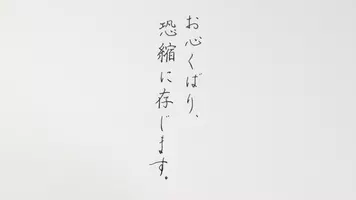 お心くばり、
恐縮に存じます。